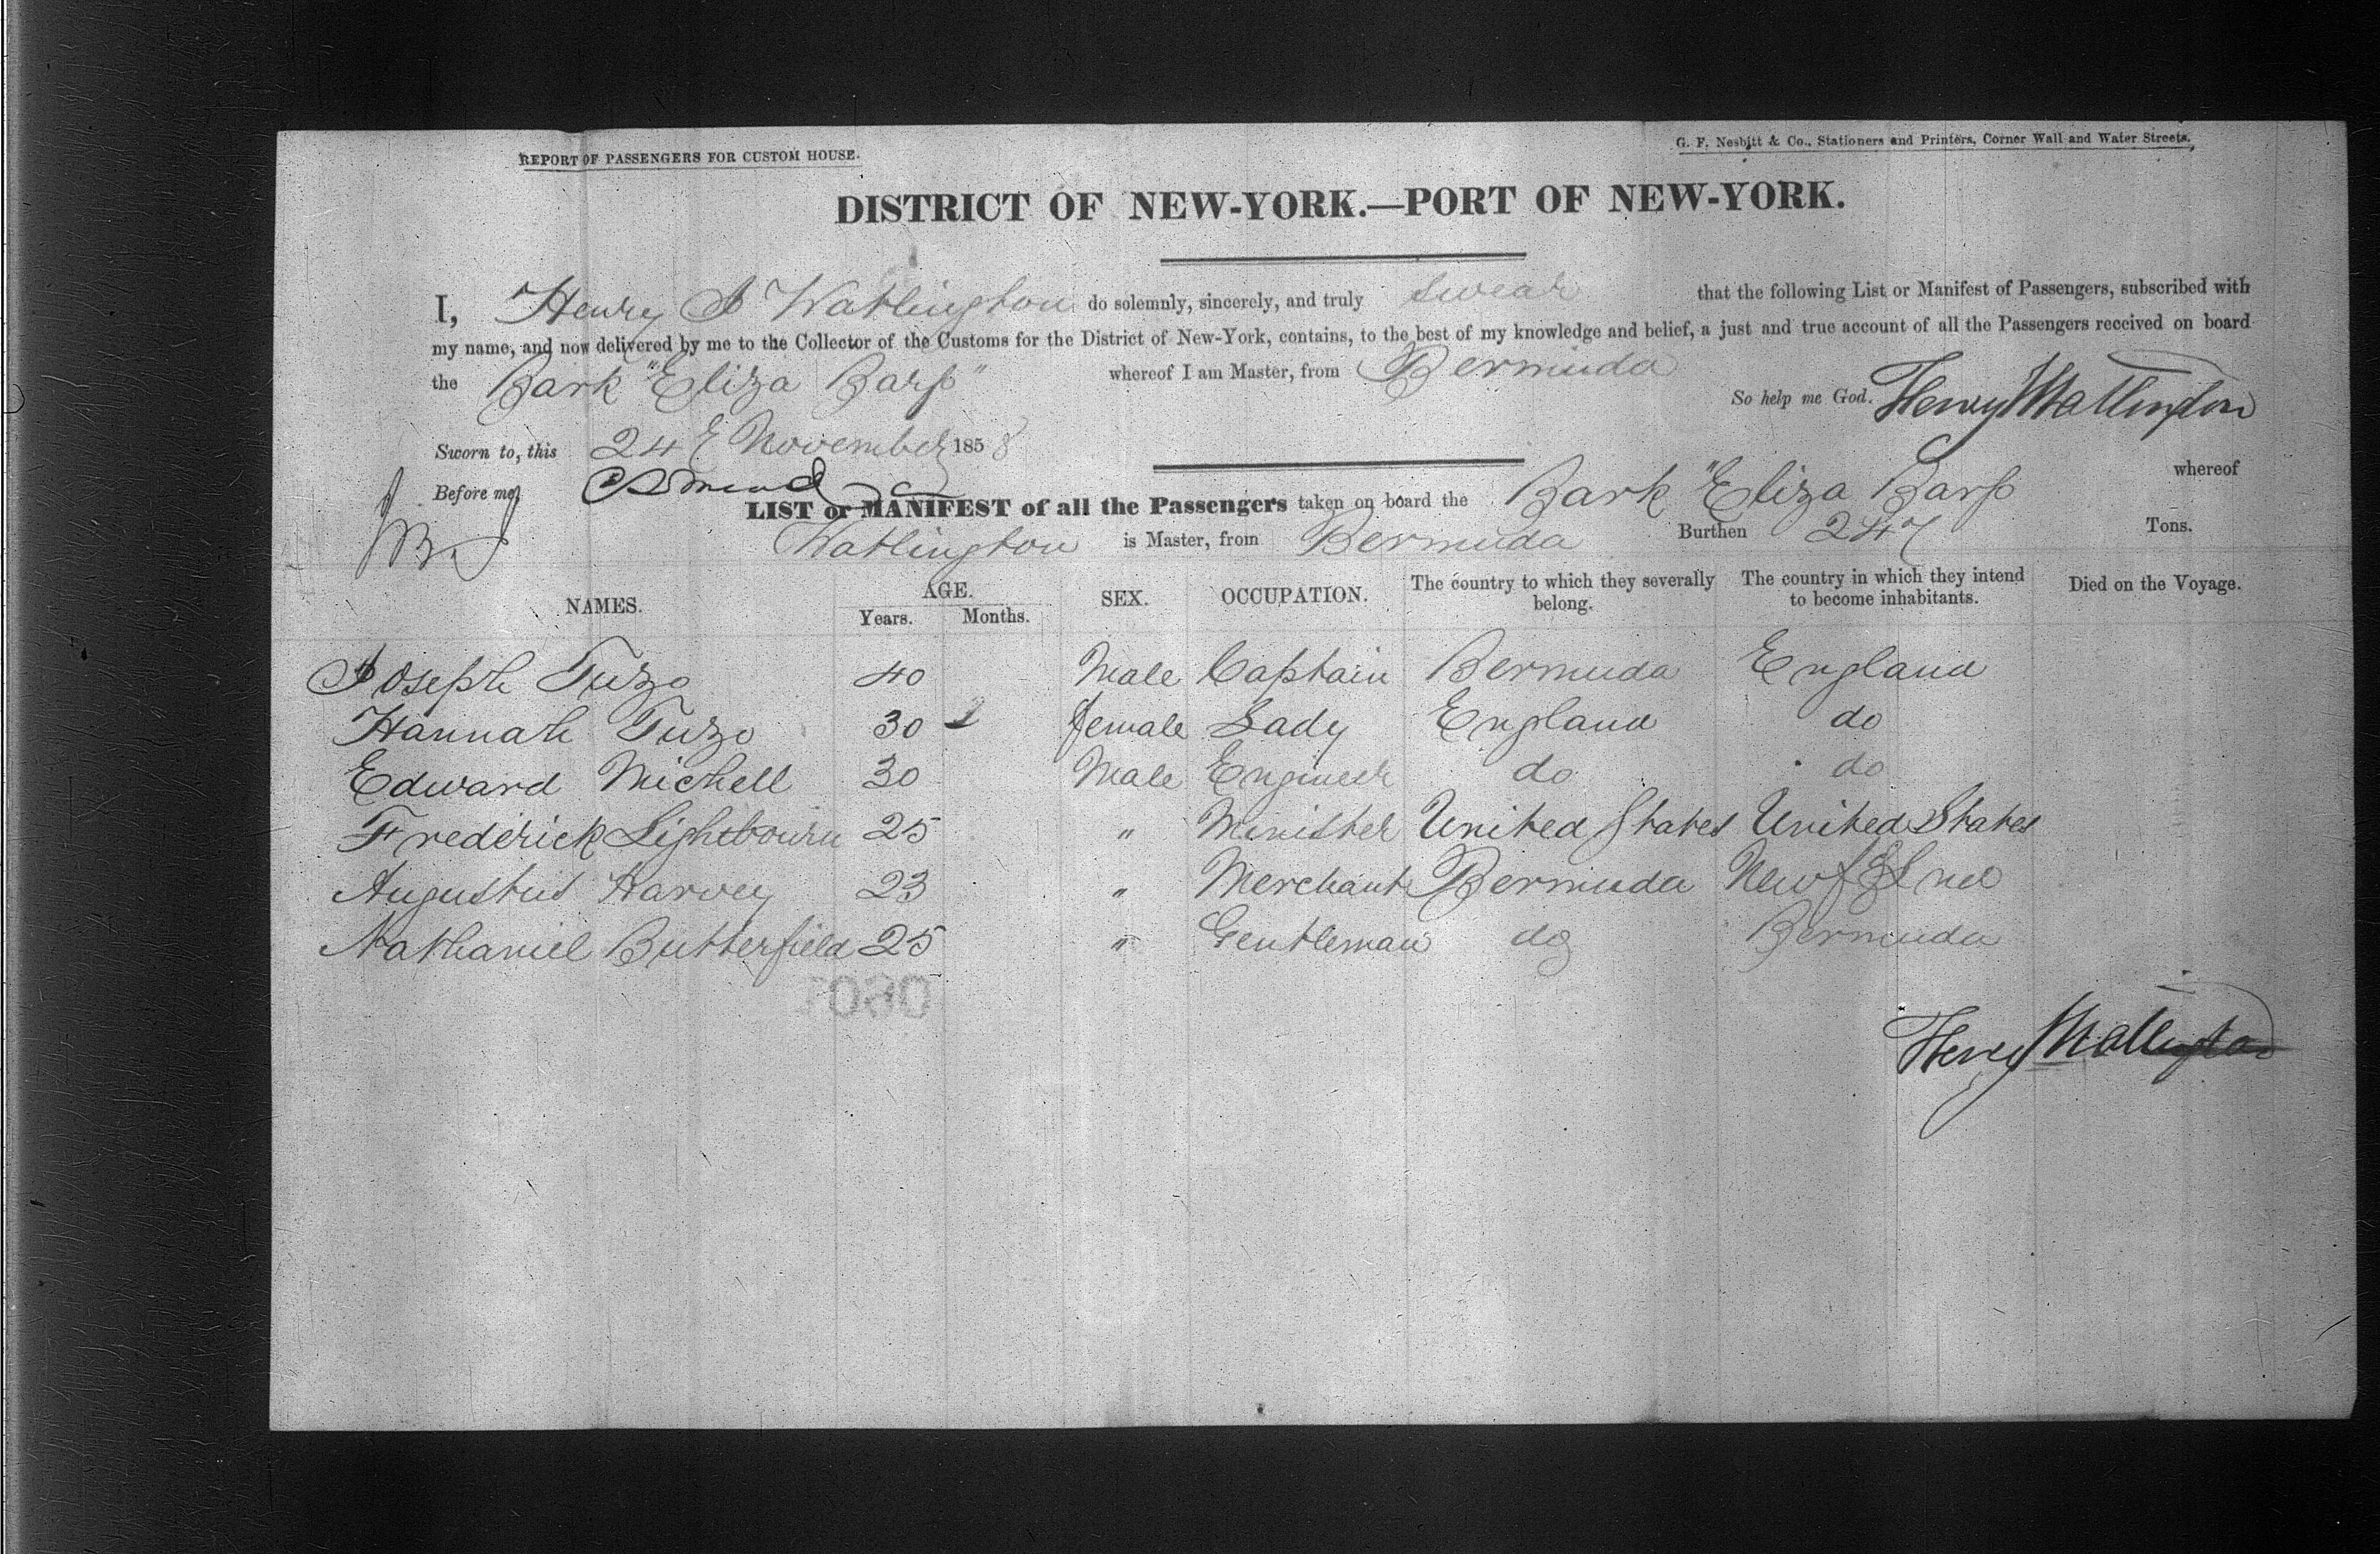 REPORT OF PASSENGERS FOR CUSTOM HOUSE.
G. F. Nesbitt & Co., Stationers and Printers, Corner Wall and Water Streets.
DISTRICT OF NEW-YORK.—PORT OF NEW-YORK.
I, Henry J Watlington do solemnly, sincerely, and truly swear that the following List or Manifest of Passengers, subscribed with
my name, and now delivered by me to the Collector of the Customs for the District of New-York, contains, to the best of my knowledge and belief, a just and true account of all the Passengers received on board
the Bark "Eliza Barss" whereof I am Master, from Bermuda
So help me God. Henry J Watlington
Sworn to, this 24 November 1858
Before me,
LIST or MANIFEST of all the Passengers taken on board the Bark "Eliza Barss whereof
Watlington is Master, from Bermuda Burthen 247 Tons.
NAMES. AGE. Years. Months. SEX. OCCUPATION. The country to which they severally belong. The country in which they intend to become inhabitants. Died on the Voyage.
Joseph Tuzo 40 Male Captain Bermuda England
Hannah Tuzo 30 female Lady England do
Edward Michell 30 Male Engineer do do
Frederick Lightbourn 25 " Minister United States United States
Augustus Harvey 23 " Merchant Bermuda
Nathaniel Butterfield 25 " Gentleman do Bermuda
Henry J Watlington